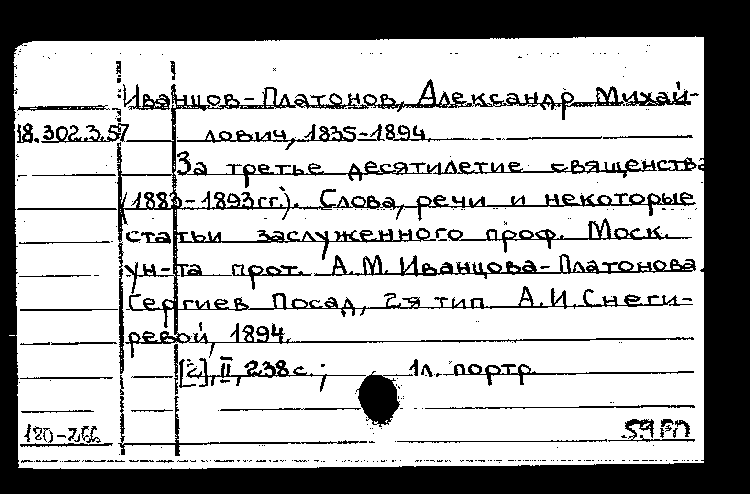 Иванцов-Платонов, Александр Михай-
18.302.3.57 лович, 1835-1894.
За третье десятилетие священства
(1883-1893гг.). Слова, речи и некоторые
статьи заслуженного проф. Моск.
ун-та прот. А.М. Иванцова-Платонова.
Сергиев Посад, 2-я тип. А.И. Снеги-
ревой, 1894.
[2], II, 238 с.; 1л. портр.
180-266